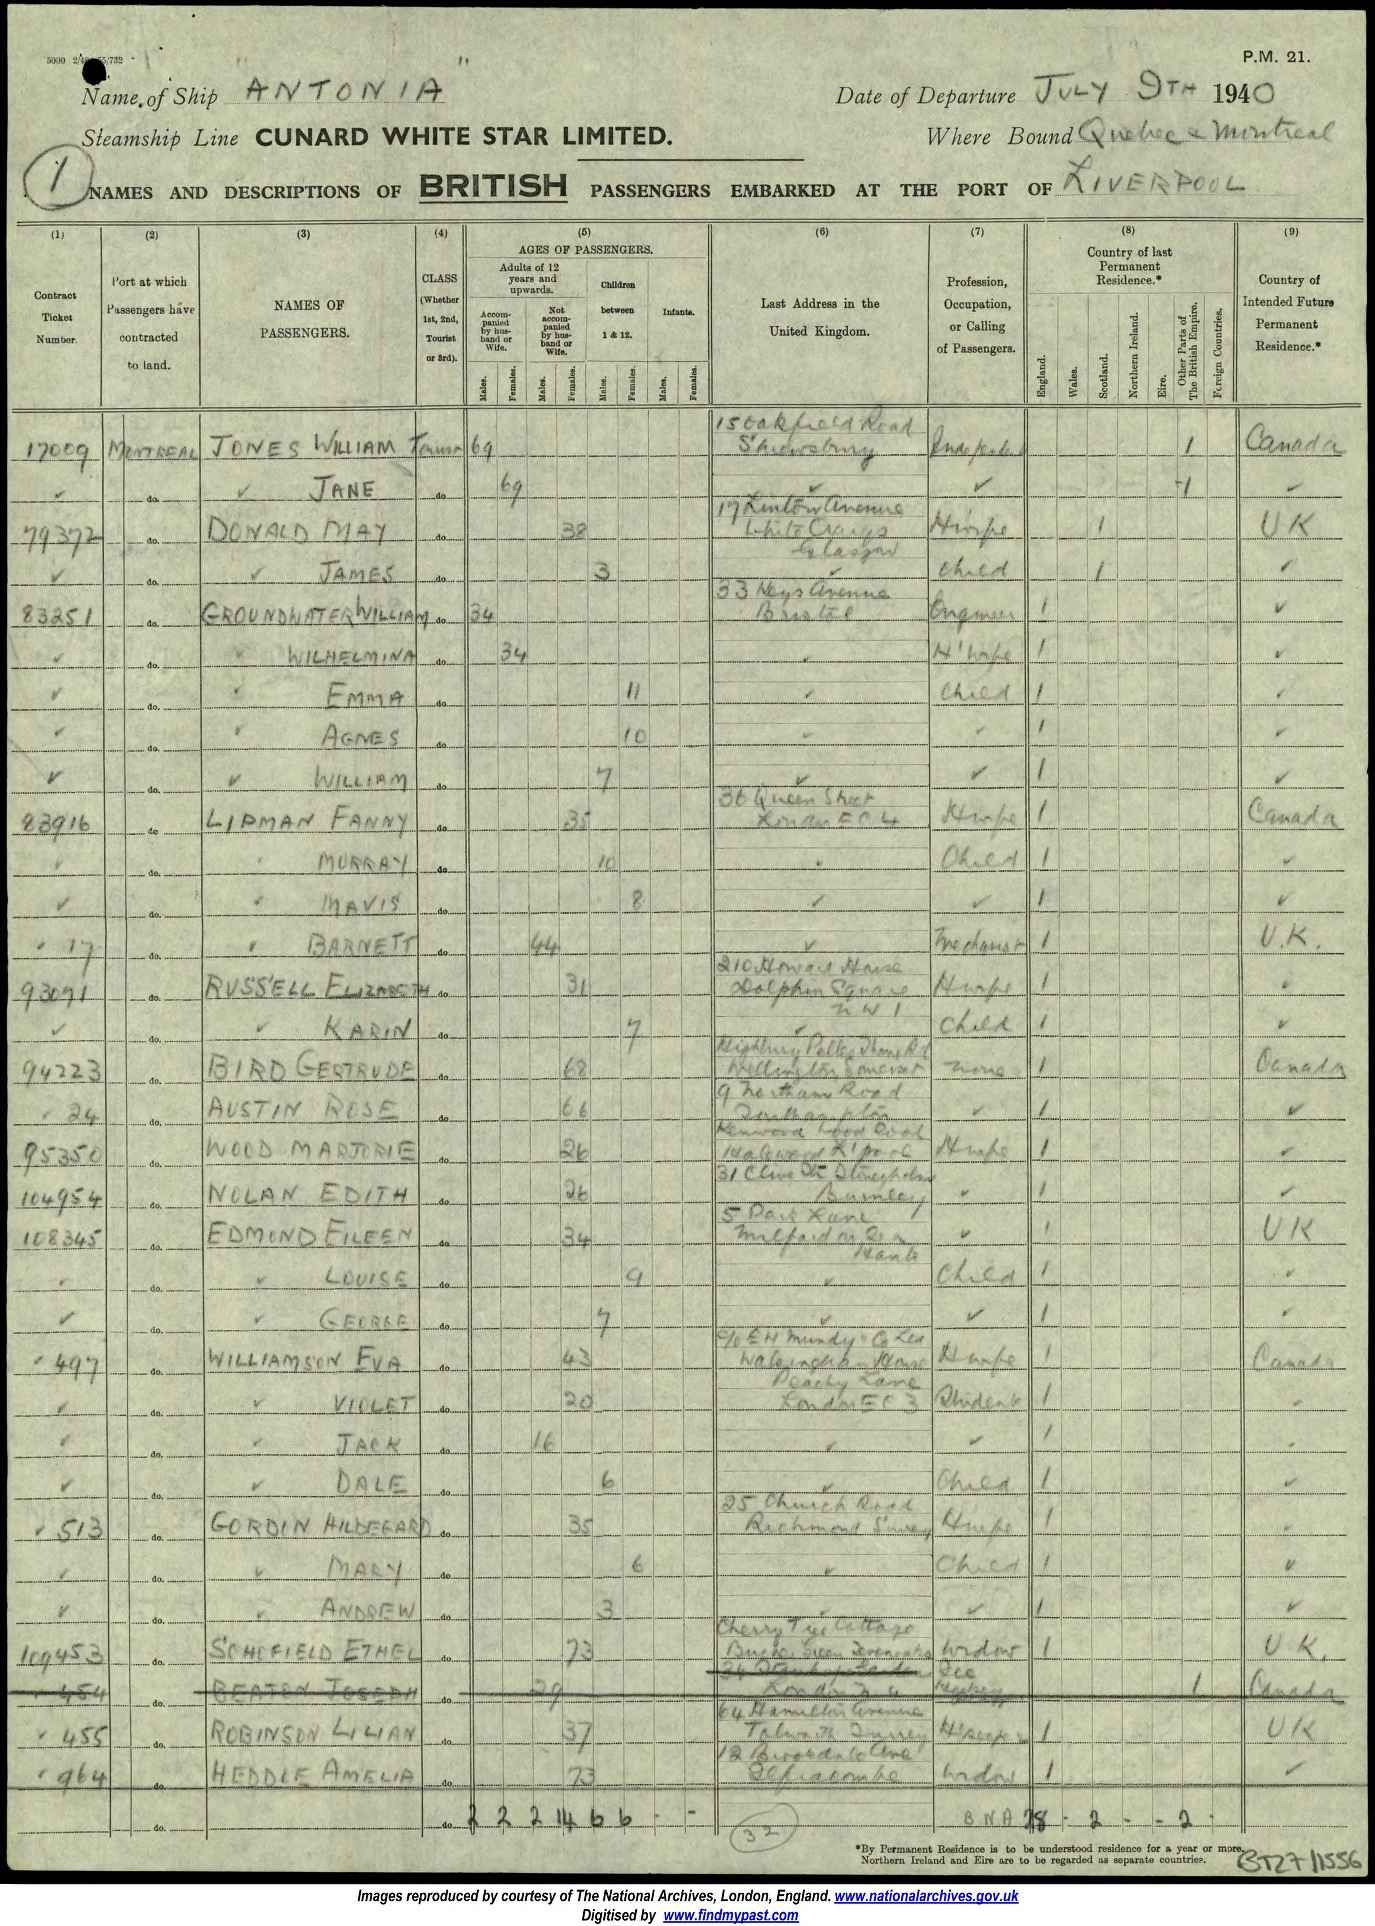 5000 2/40 55/732
P.M. 21.
Name of Ship "ANTONIA" Date of Departure JULY 9TH 1940
Steamship Line CUNARD WHITE STAR LIMITED. Where Bound Quebec & Montreal
1 NAMES AND DESCRIPTIONS OF BRITISH PASSENGERS EMBARKED AT THE PORT OF LIVERPOOL
(1) (2) (3) (4) (5) (6) (7) (8) (9)
Contract Ticket Number.
Port at which Passengers have contracted to land.
NAMES OF PASSENGERS.
CLASS (Whether 1st, 2nd, Tourist or 3rd).
AGES OF PASSENGERS.
Adults of 12 years and upwards.
Accompanied by husband or Wife.
Not accompanied by husband or Wife.
Children between 1 & 12.
Infants.
Males. Females. Males. Females. Males. Females. Males. Females.
Last Address in the United Kingdom.
Profession, Occupation, or Calling of Passengers.
Country of last Permanent Residence.*
England. Wales. Scotland. Northern Ireland. Eire. Other Parts of The British Empire. Foreign Countries.
Country of Intended Future Permanent Residence.*
17009 MONTREAL JONES WILLIAM Tourist 69 15 Oakfield Road Shrewsbury Independent 1 Canada
✓ do. ✓ JANE do 69 ✓ ✓ 1 ✓
79372 do. DONALD MAY do 38 17 Linton Avenue Whitecraigs Glasgow H'wife 1 UK
✓ do. ✓ JAMES do 3 ✓ Child 1 ✓
83251 do. GROUNDWATER WILLIAM do 34 33 Keys Avenue Bristol Engineer 1 ✓
✓ do. ✓ WILHELMINA do 34 ✓ H'wife 1 ✓
✓ do. ✓ EMMA do 11 ✓ Child 1 ✓
✓ do. ✓ AGNES do 10 ✓ ✓ 1 ✓
✓ do. ✓ WILLIAM do 7 ✓ ✓ 1 ✓
83916 do LIPMAN FANNY do 35 36 Queen Street London EC4 H'wife 1 Canada
✓ do. ✓ MURRAY do 10 ✓ Child 1 ✓
✓ do. ✓ MAVIS do 8 ✓ ✓ 1 ✓
✓ 17 do. ✓ BARNETT do 44 ✓ 1 U.K.
93091 do. RUSSELL ELIZABETH do 31 210 Howard House Dolphin Square NW1 H'wife 1 ✓
✓ do. ✓ KARIN do 7 ✓ Child 1 ✓
94223 do. BIRD GERTRUDE do 68 Wellington Somerset None 1 Canada
✓ 24 do. AUSTIN ROSE do 66 9 Northam Road Southampton ✓ 1 ✓
95350 do. WOOD MARJORIE do 26 Kenwood Wood Road Halewood L'pool H'wife 1 ✓
104954 do. NOLAN EDITH do 26 31 Burnley ✓ 1 ✓
108345 do. EDMOND EILEEN do 34 5 Park Lane Milford on Sea Hants ✓ 1 UK
✓ do. ✓ LOUISE do 9 ✓ Child 1 ✓
✓ do. ✓ GEORGE do 7 ✓ ✓ 1 ✓
✓ 497 do. WILLIAMSON EVA do 43 c/o E H Mundy & Co Ltd Walsingham House Lane London EC3 H'wife 1 Canada
✓ do. ✓ VIOLET do 20 Student 1 ✓
✓ do. ✓ JACK do 16 ✓ ✓ 1 ✓
✓ do. ✓ DALE do 6 ✓ Child 1 ✓
✓ 513 do. GORDIN HILDEGARD do 35 25 Church Road Richmond Surrey H'wife 1 ✓
✓ do. ✓ MARY do 6 ✓ Child 1 ✓
✓ do. ✓ ANDREW do 3 ✓ ✓ 1 ✓
109453 do. SCHOFIELD ETHEL do 73 Cherry Tree Cottage Green Sevenoaks Widow 1 U.K.
✓ 454 do. BEATON JOSEPH do 29 London N 4 1 Canada
✓ 455 do. ROBINSON LILIAN do 37 64 Hamilton Avenue Tolworth Surrey 1 UK
✓ 964 do. HEDDLE AMELIA do 73 12 Brookdale Ave Ilfracombe Widow 1 ✓
do. do 2 2 2 14 6 6 - - BNA 28 - 2 - - 2 -
32
*By Permanent Residence is to be understood residence for a year or more.
Northern Ireland and Eire are to be regarded as separate countries.
BT27/1556
Images reproduced by courtesy of The National Archives, London, England. www.nationalarchives.gov.uk
Digitised by www.findmypast.com